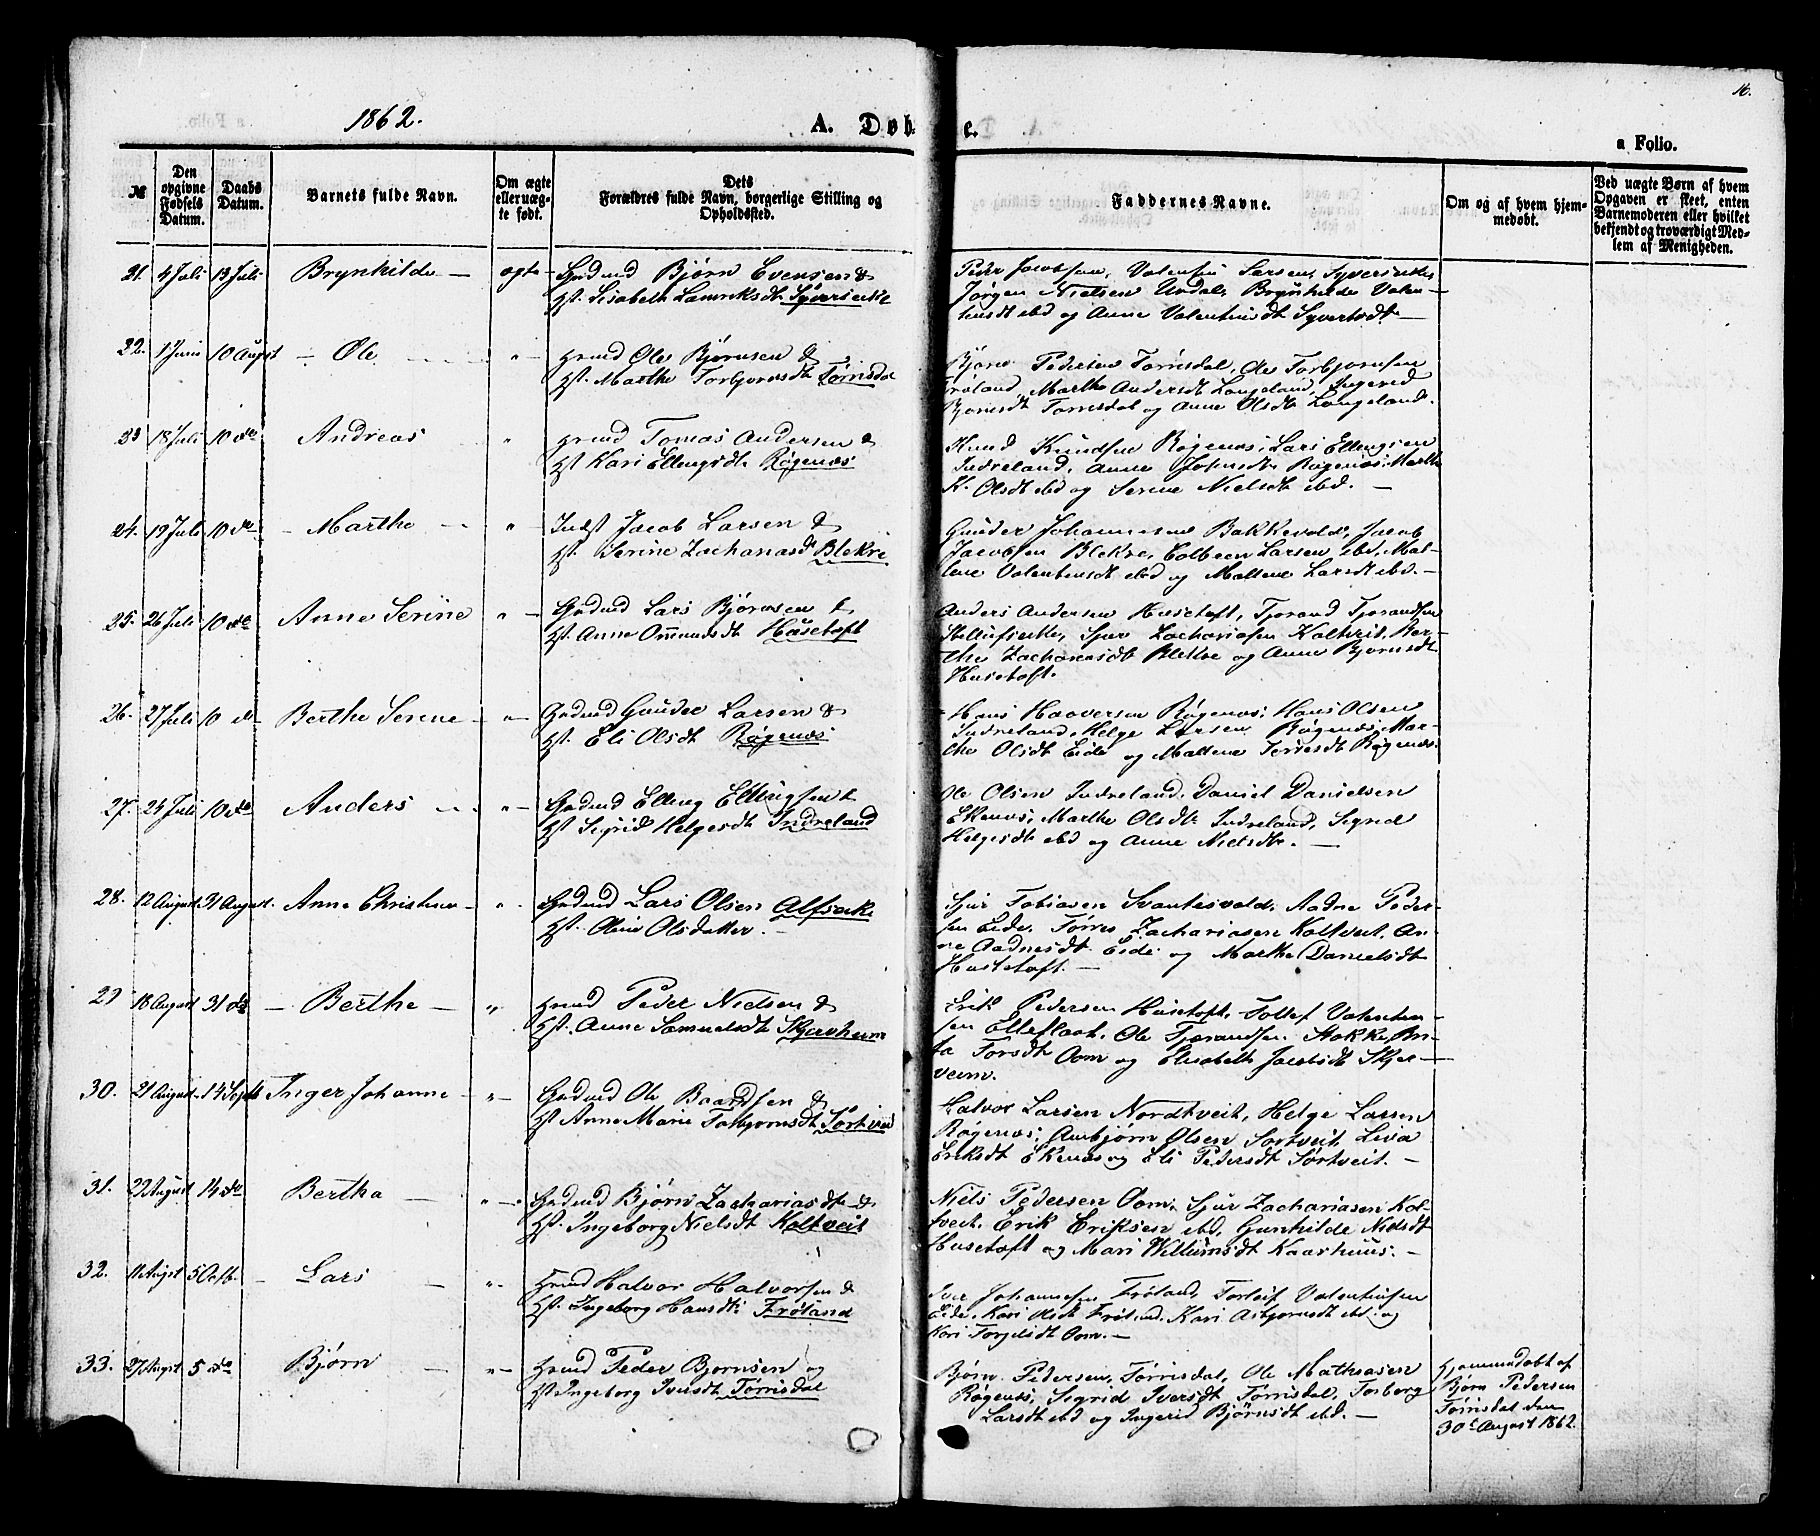 16.
1862.
A. Døbte.
a Folio.
№
Den opgivne Fødsels Datum.
Daabs Datum.
Barnets fulde Navn.
Om ægte eller uægte født.
Dets Forældres fulde Navn, borgerlige Stilling og Opholdssted.
Faddernes Navne.
Om og af hvem hjemmedøbt.
Ved uægte Børn af hvem Opgaven er skeet, enten Barnemoderen eller hvilket bekjendt og troværdigt Medlem af Menigheden.
21. 4 Juli 13 Juli Brynhilde — ægte
Gdmd Bjørn Evensen &
Hst. Lisabeth Lauriksdt.
Peder Jacobsen, Valentin Larsen,
Jørgen Nielsen Urdal, Brynhilde Valen-
tinsdt ebd og Anne Valentinsdt
22. 1 Juni 10 Augst — Ole „
Hmd Ole Bjørnsen &
Hst. Marthe Torbjørnsdt Tørrisdal
Bjørn Pedersen Tørrisdal, Ole Torbjørnsen
Frøland, Marthe Andersdt Langeland, Ingerid
Bjørnsdt Tørrisdal og Anne Olsdt Langeland.
23 18 Juli 10 do Andreas „
Hmd Tomas Andersen &
Hst Kari Ellingsdt Røgenæs
Knud Knudsen Røgenæs, Lars Ellingsen
Indreland, Anne Johnsdt Røgenæs, Marthe
K. Olsdt ebd og Serine Nielsdt ebd. —
24. 19 Juli 10 do — Marthe — „
Indst Jacob Larsen &
Hst. Serine Zachariasdt Blekre
Gunder Johannesen Bakkevold, Jacob
Jacobsen Blekre, Colbeen Larsen ebd, Mal-
lene Valentinsdt ebd og Maltene Larsdt ebd. —
25. 26 Juli 10 do Anne Serine „
Gdmd Lars Bjørnsen &
Hst. Anne Omundsdt Husetoft
Anders Andersen Husetoft, Tjerand Tjerandsen
Sjur Zachariasen Koltveit, Ber-
the Zachariasdt Blekre og Anne Bjørnsdt
Husetoft.
26. 27 Juli 10 do Berthe Serine „
Gdmd Gunder Larsen &
Hst. Eli Olsdt Røgenæs
Hans Haaversen Røgenæs, Hans Olsen
Indreland, Helge Larsen Røgenæs, Mar-
the Olsdt Eide og Maltene Torresdt Røgenæs.
27. 24 Juli 10 do Anders „
Gdmd Elling Ellingsen &
Hst Sigrid Helgesdt Indreland
Ole Olsen Indreland, Daniel Danielsen
Ekenæs, Marthe Olsdt Indreland, Sigrid
Helgesdt ebd og Anne Nielsdt. —
28. 12 August 31 August. Anne Christine „
Gdmd Lars Olsen Alfsvåke
Hst. Oline Olsdatter. —
Sjur Tobiasen Svantesvold, Aadne Peder-
sen Eide, Tørres Zachariasen Koltveit, An-
ne Aadnesdt Eide og Marthe Danielsdt
Husetoft. —
29 18 August 31 do — Berthe — „
Hmd Peder Nielsen &
Hst. Anne Samuelsdt Skjerheim
Erik Pedersen Husetoft, Tollef Valentin-
sen Elleflaat, Ole Tjerandsen Stokke, Bri-
ta Torsdt Oom og Elisabeth Jacobsdt Skjer-
veim.
30. 21 August 14 Septb Inger Johanne „
Gdmd Ole Baardsen &
Hst Anne Marie Torbjørnsdt Sørtveit
Halvor Larsen Nordtveit, Helge Larsen
Røgenæs, Aanbjørn Olsen Sørtveit, Liva
Eriksdt Ekenæs og Eli Pedersdt Sørtveit. —
31. 22 August 14 do Bertha — „
Gdmd Bjørn Zachariasdt &
Hst. Ingeborg Nielsdt Koltveit
Niels Pedersen Oom, Sjur Zachariasen Kol-
tveit, Erik Eriksen ebd, Gunhilde Nielsdt
Husetoft og Mari Willumsdt Kaarhuus. —
32. 11 Augst 5 Octb. — Lars — „
Hmd Halvor Halvorsen &
Hst. Ingeborg Hansdt Frøland
Iver Johannesen Frøland, Torleif Valentinsen
Eide, Kari Olsdt Frøland, Kari Asbjørnsdt ebd og
Kari Torgelsdt Oom. —
33. 27 Augst 5 do Bjørn — „
Hmd Peder Bjørnsen og
Hst Ingeborg Iversdt Tørrisdal
Bjørn Pedersen Tørrisdal, Ole Mathiasen
Røgenæs, Sigrid Iversdt Tørrisdal, Torborg
Larsdt ebd og Ingerid Bjørnsdt ebd. —
Hjemmedøbt af
Bjørn Pedersen
Tørrisdal den
30t August 1862.